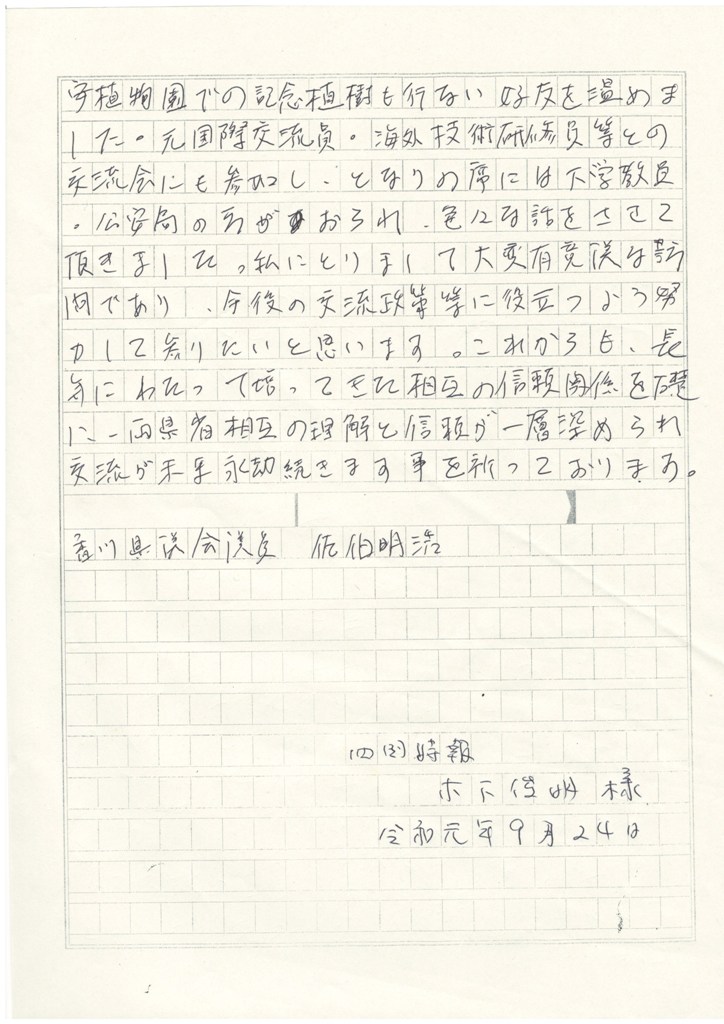 安植物園での記念植樹も行ない好友を温めま
した。元国際交流員・海外技術研修員等との
交流会にも参加し、となりの席には大学教員
・公安局の方がおられ、色々な話をさせて
頂きました。私にとりまして大変有意議な訪
問であり、今後の交流政策等に役立つよう努
力して参りたいと思います。これからも、長
年にわたって培ってきた相互の信頼関係を礎
に、両県省相互の理解と信頼が一層深められ
交流が未来永劫続きます事を祈っております。
香川県議会議員 佐伯明浩
四国時報
木下俊明 様
令和元年9月24日